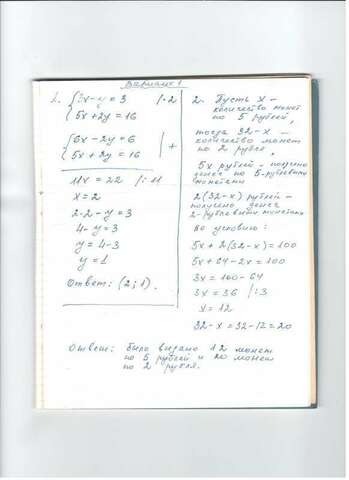 Вариант 1
1. {3x-y=3 |·2
{5x+2y=16
{6x-2y=6
{5x+2y=16 | +
11x=22 |:11
x=2
2·2-y=3
4-y=3
y=4-3
y=1
Ответ: (2; 1).
2. Пусть x -
количество монет
по 5 рублей,
тогда 32-x -
количество монет
по 2 рубля.
5x рублей - получено
денег по 5-рублевыми
монетами
2(32-x) рублей -
получено денег
2-рублевыми монетами
По условию:
5x+2(32-x)=100
5x+64-2x=100
3x=100-64
3x=36 |:3
x=12
32-x=32-12=20
Ответ: было выдано 12 монет
по 5 рублей и 20 монет
по 2 рубля.